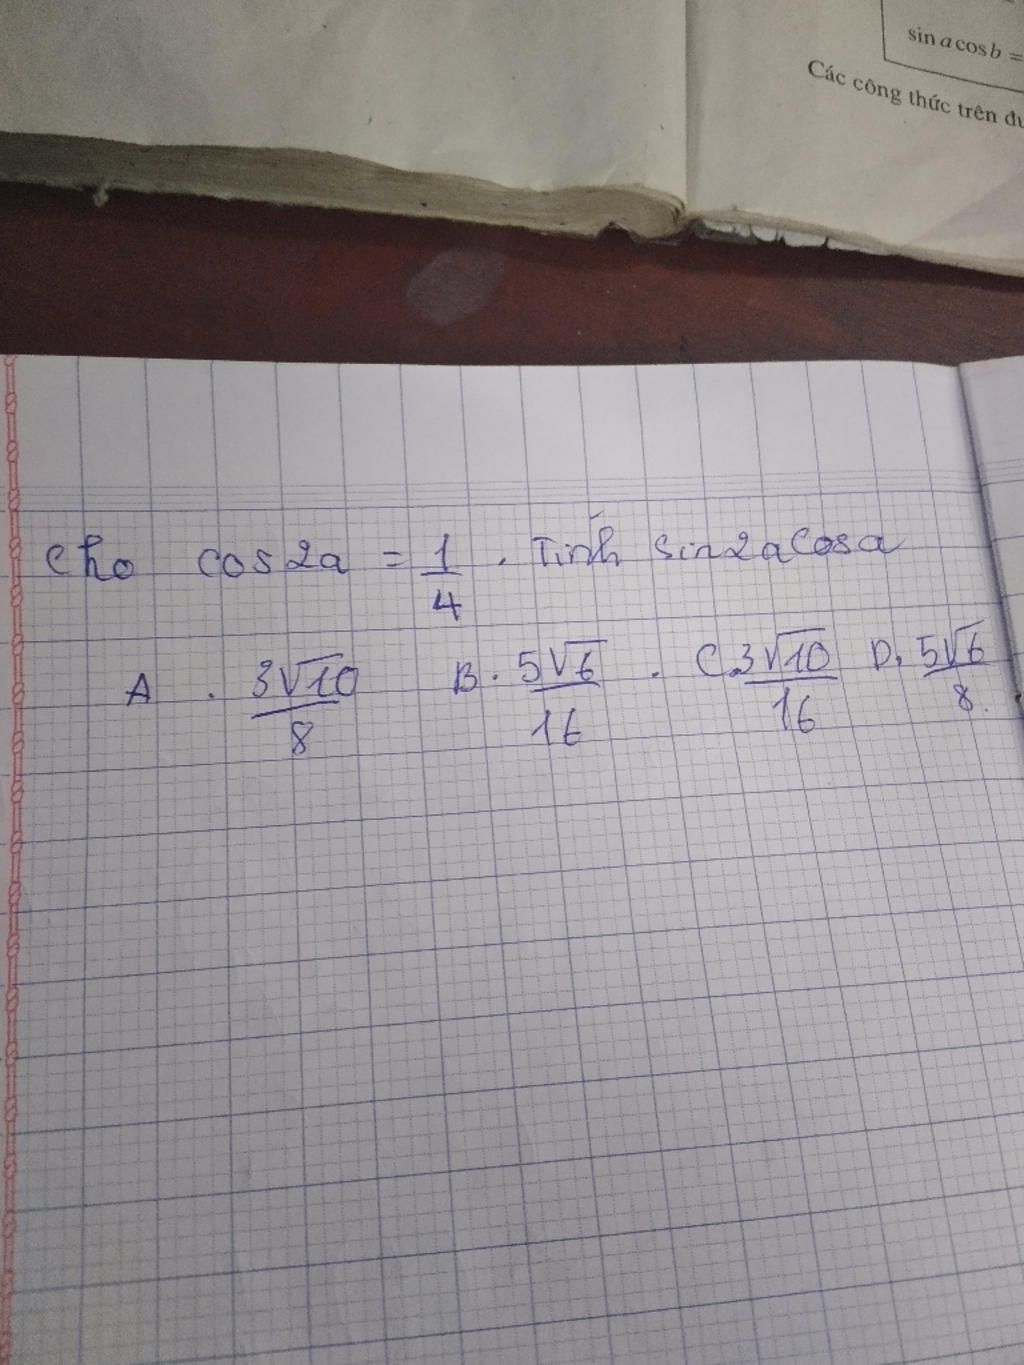 sin a cos b =
Các công thức trên đư
Cho cos2a = 1/4 . Tính sin2acosa
A . 3√10/8 B. 5√6/16 . C. 3√10/16 D. 5√6/8.